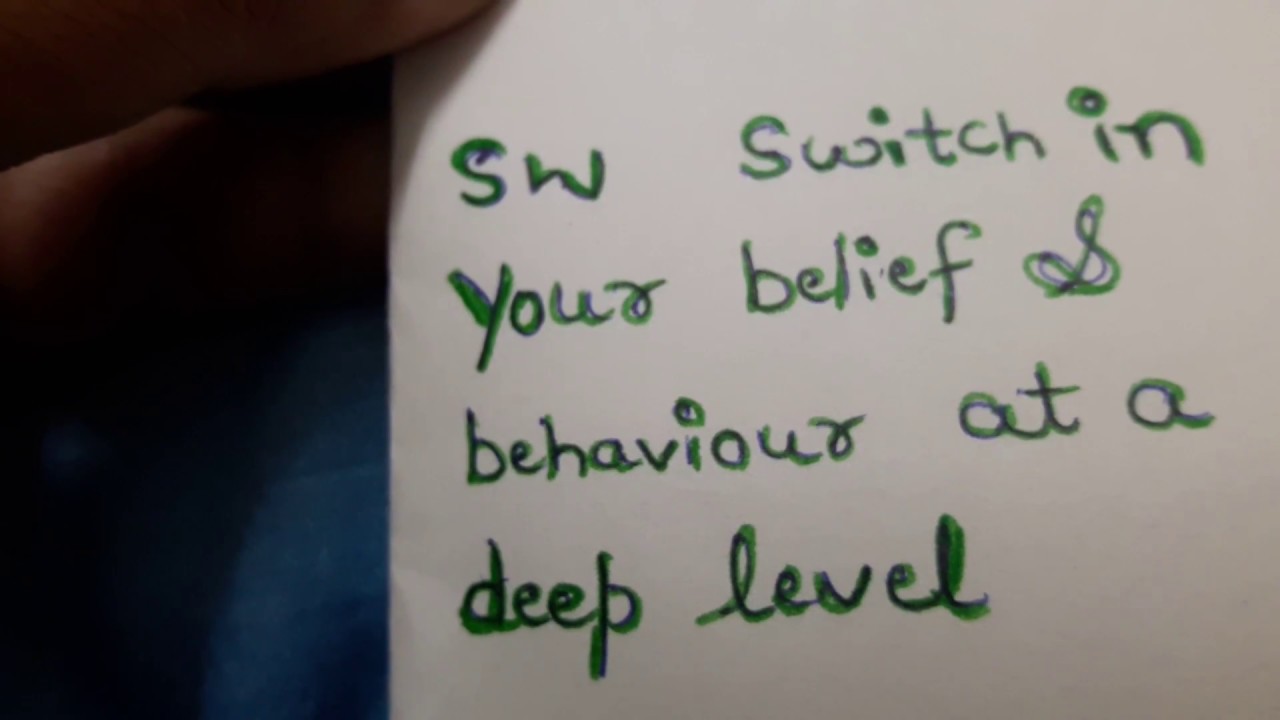 SW Switch in
Your belief &
behaviour at a
deep level